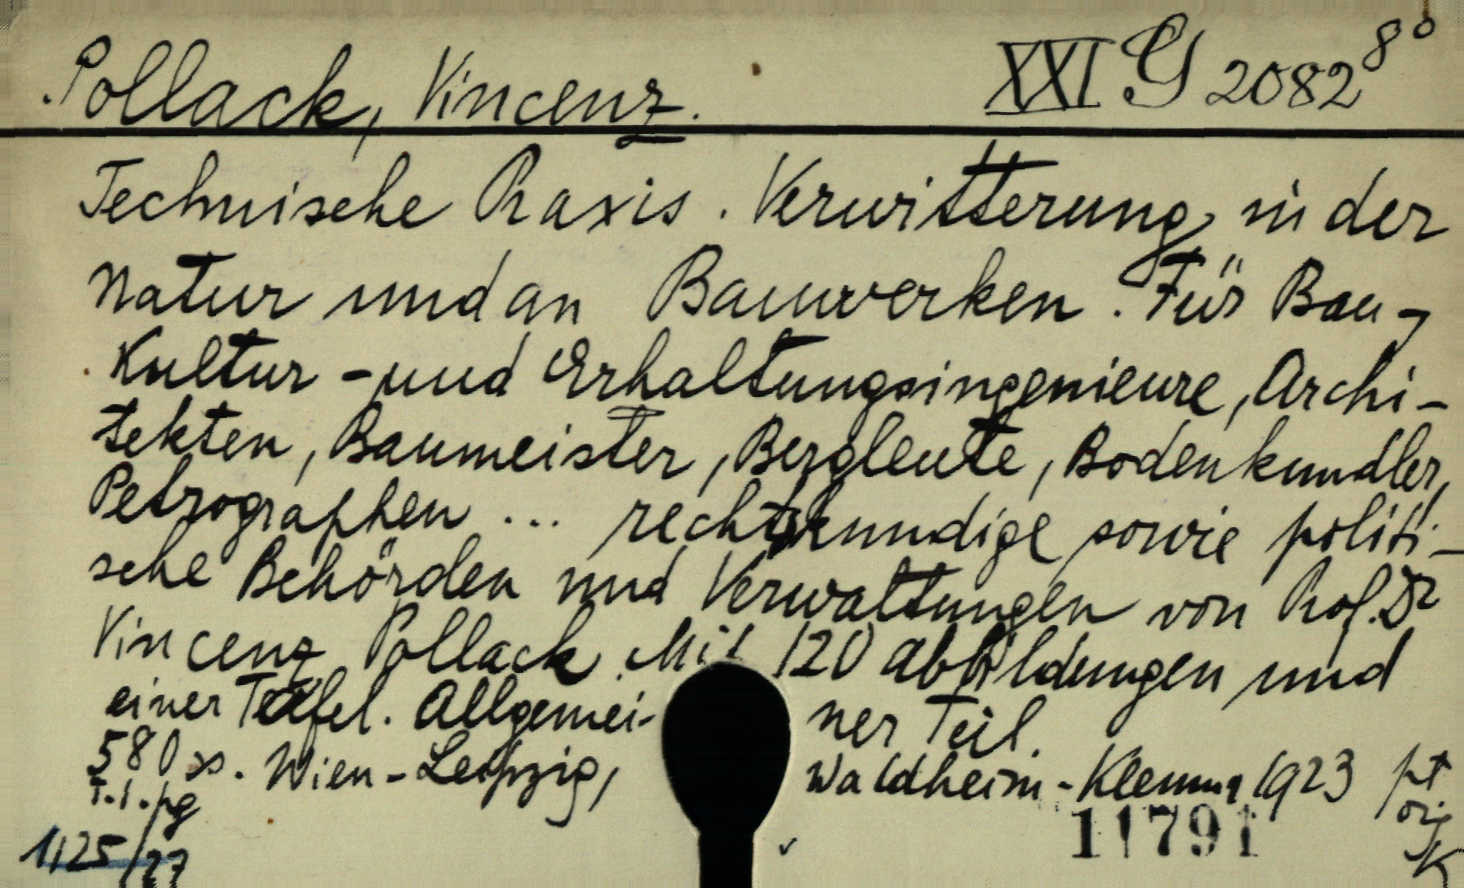 Pollack, Vincenz. XXI G 2082 8°
Technische Praxis. Verwitterung in der
Natur und an Bauwerken. Für Bau-,
Kultur- und Erhaltungsingenieure, Archi-
tekten, Baumeister, Bergleute, Bodenkundler,
Petrographen ... rechtskundige sowie politi-
sche Behörden und Verwaltungen von Prof. Dr
Vincenz Pollack. Mit 120 Abbildungen und
einer Tafel. Allgemei- ner Teil.
580 ss. Wien-Leipzig, Waldheim-Klemm, 1923 pt
T.1.pg orig
11791 K
1125/27